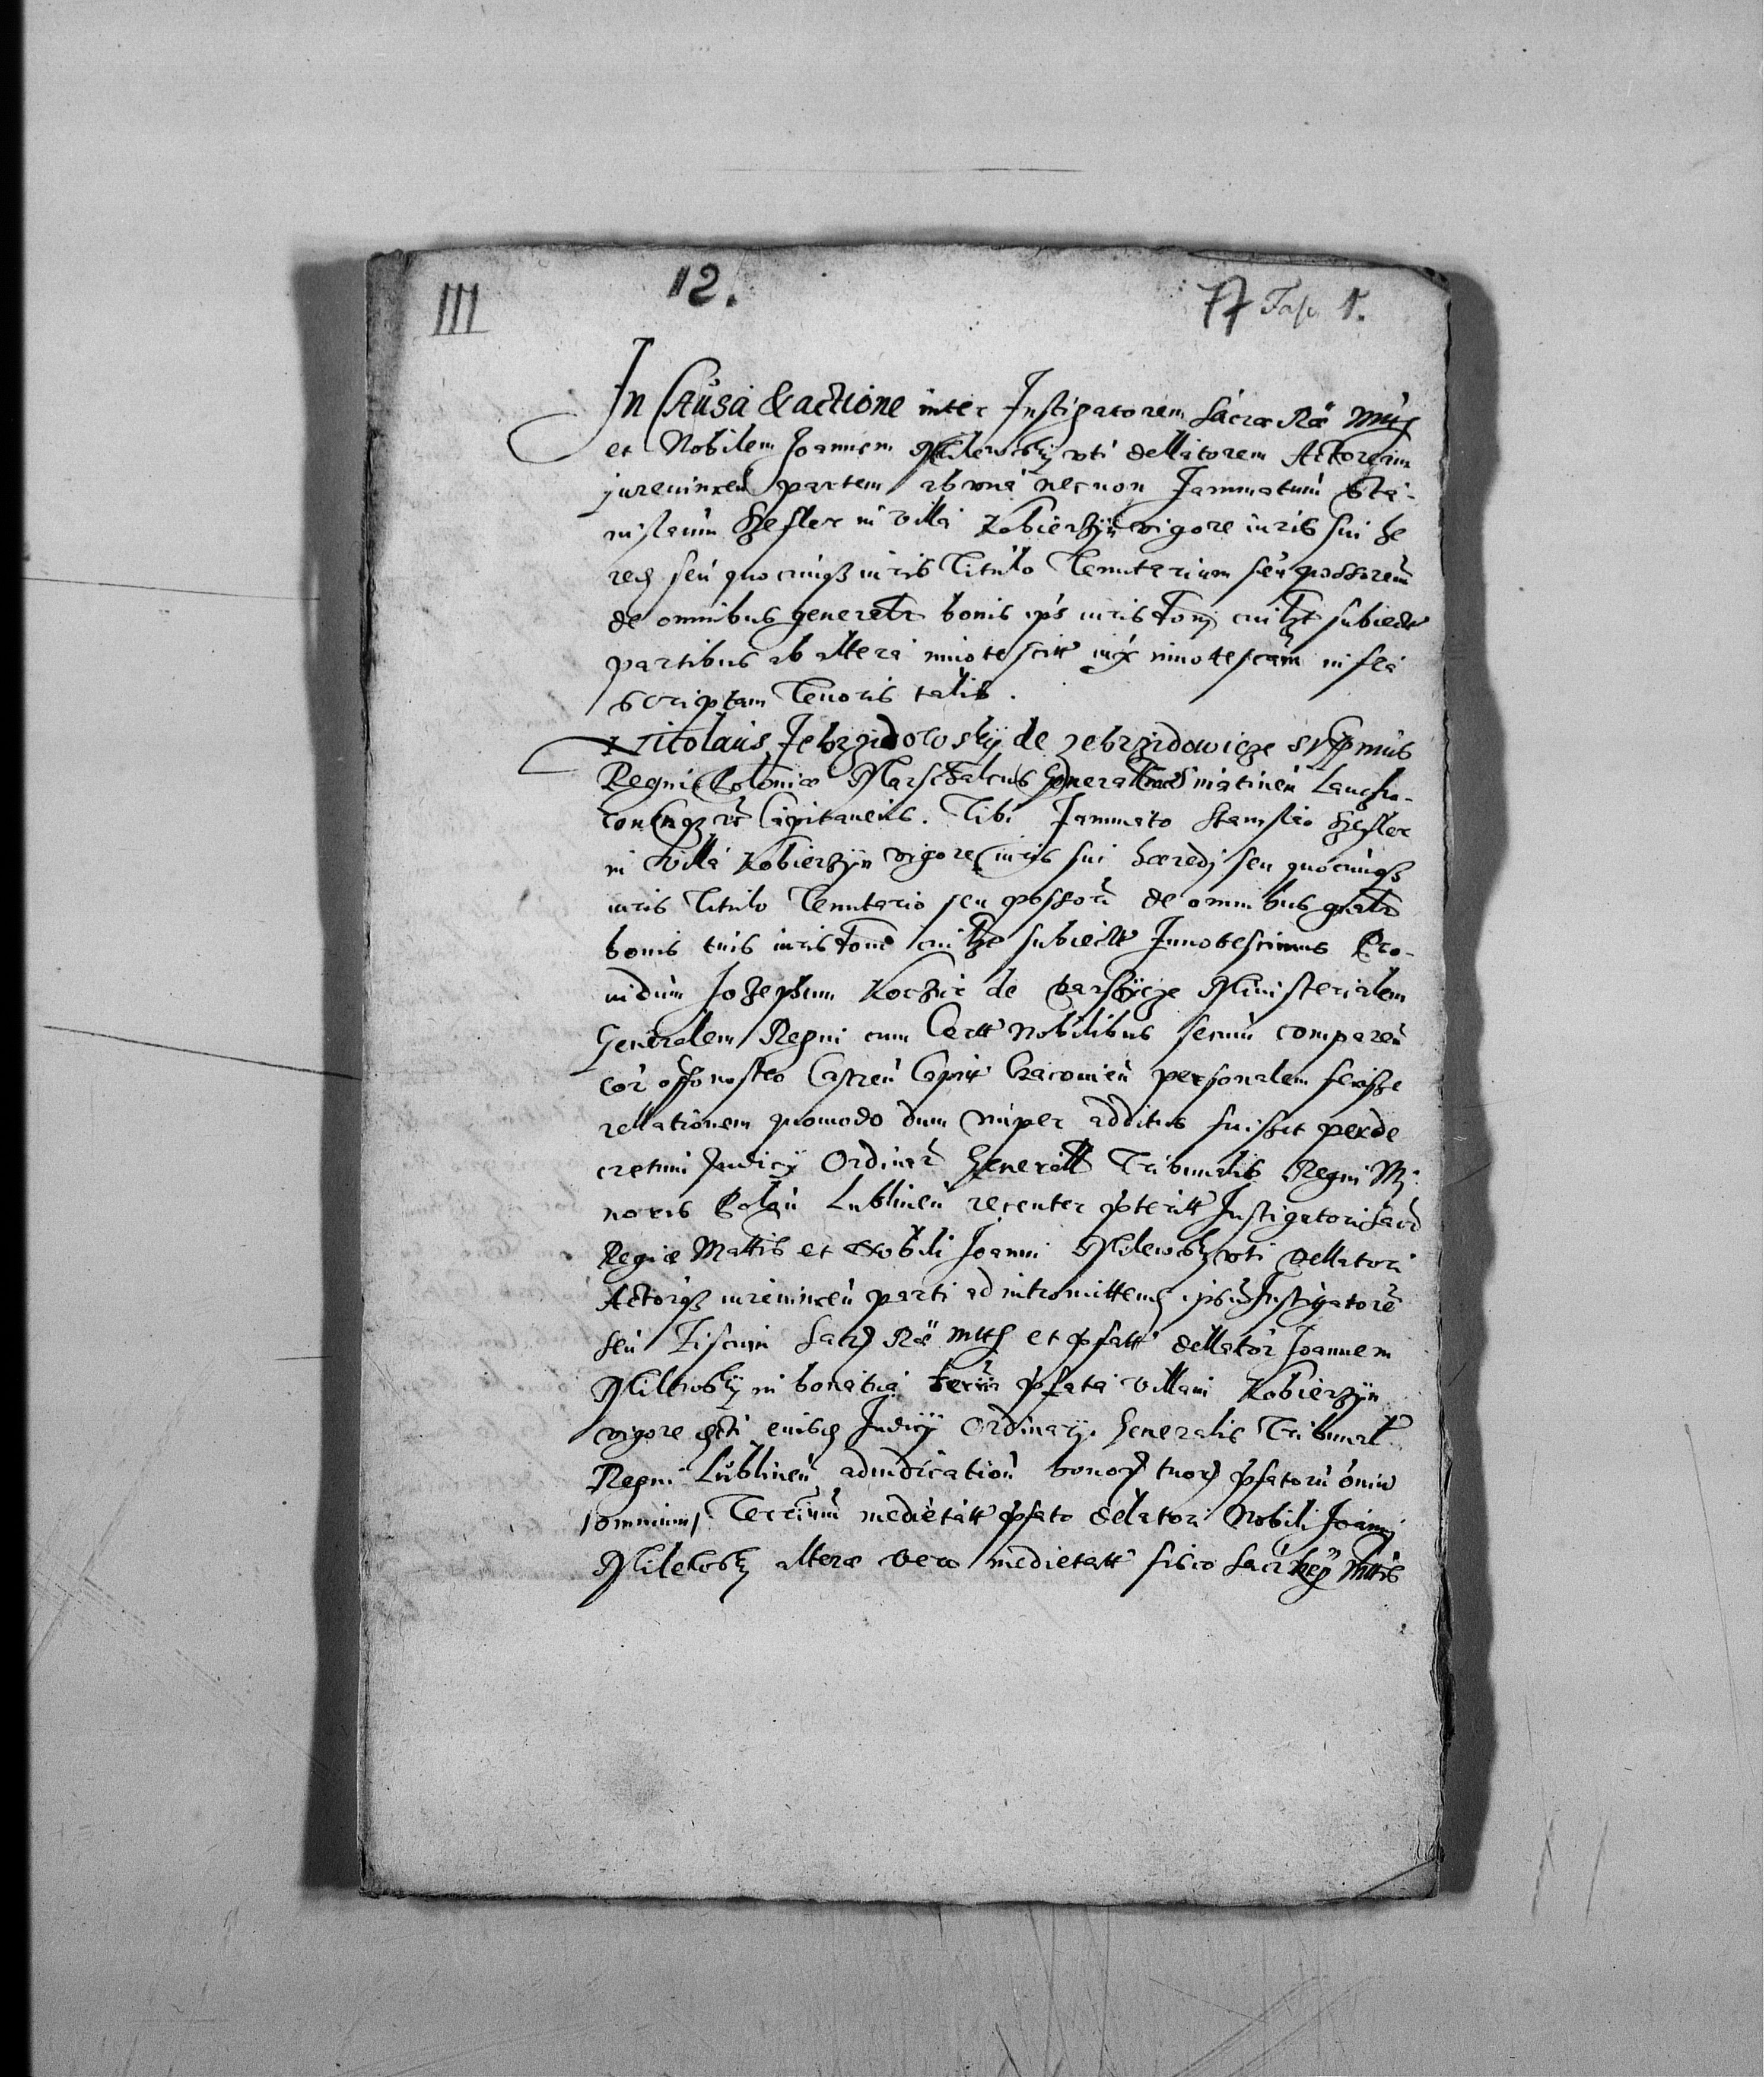 III 12. 77 Fasc. 1.
In Causa & actione inter Instigatorem Sacræ Ræ Mtis
et Nobilem Joannem Milewsky uti dellatorem Actoream
jurevincen partem ab una necnon Jammatum Sta-
nislaum Szefler in villa Kobierzÿn vigore iuris sui he
red seu quocunqz iuris Titulo Tenutarium seu possorem
de omnibus generalr bonis ips iurisdoni subiectt
partibus ab altera innotescitt innotescam infra
scriptam Tenoris talis.
Nicolaus Zebrzidowskÿ de Zebrzidowicze Suppmus
Regni Poloniæ Marschalcus Generalis Lanczko-
ronenqz Capitaneus. Tibi Jammato Stanislao Szefler
in Villa Kobierzÿn vigore iuris sui hæredj seu quocunqz
iuris Titulo Tenutario seu possori de omnibus gnalr
bonis tuis iurisdoni subiectt Innotescimus Pro-
uidum Jozephum Koczur de Ministerialem
Generalem Regni cum Certt Nobilibus secum comparen
cor offo nostro Castren Capnt Cracouien personalem fecisse
rellationem quomodo dum nuper additus fuisset per de
cretum Judicÿ Ordinar Generall Tribunalis Regni Mi-
noris Polon Lublinen recenter pteritt Instigatori Sacr
Regiæ Mattis et Nobili Joanni Milewsky uti dellatori
Actoreqz iurevincen parti ad intromittend ipsum Instigatore
seu Fiscum Sacr Ræ Mtts et pfatt dellator Joannem
Milewskÿ in bona tua pfata villam Kobierzÿn
vigore dcti eiusd Judicÿ Ordinarÿ Generalis Tribunal
Regni Lublinen adiudication bonor tuor pfatoru omiu
omnium Terrium medietatt pfato delatori Nobili Joanni
Milewsky alteræ vero medietatt fisco Sacr Reg Mttis